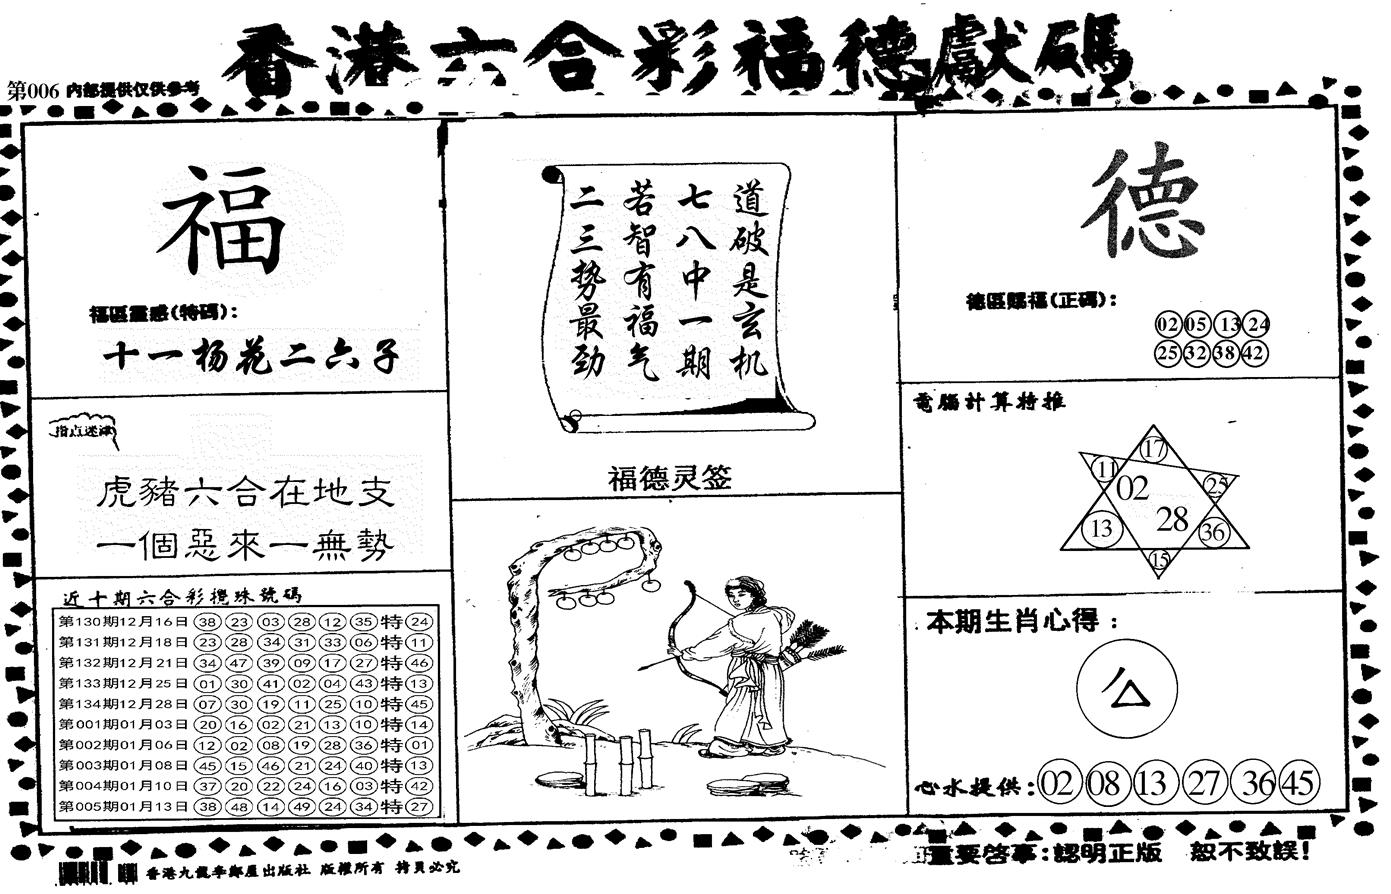 香港六合彩福德獻碼
第006 内部提供仅供参考
福
福區靈感(特碼):
十一杨花二六子
指点迷津
虎豬六合在地支
一個惡來一無勢
近十期六合彩攪珠號碼
第130期12月16日 38 23 03 28 12 35 特 24
第131期12月18日 23 28 34 31 33 06 特 11
第132期12月21日 34 47 39 09 17 27 特 46
第133期12月25日 01 30 41 02 04 43 特 13
第134期12月28日 07 30 19 11 25 10 特 45
第001期01月03日 20 16 02 21 13 10 特 14
第002期01月06日 12 02 08 19 28 36 特 01
第003期01月08日 45 15 46 21 24 40 特 13
第004期01月10日 37 20 22 24 16 03 特 42
第005期01月13日 38 48 14 49 24 34 特 27
道破是玄机
七八中一期
若智有福气
二三势最劲
福德灵签
德
德區賜福(正碼):
02 05 13 24
25 32 38 42
電腦計算特推
17
11
25
02
28
13
36
15
本期生肖心得:
心水提供: 02 08 13 27 36 45
香港九龍李鄭屋出版社 版權所有 拷貝必究
重要啓事:認明正版 恕不致誤!